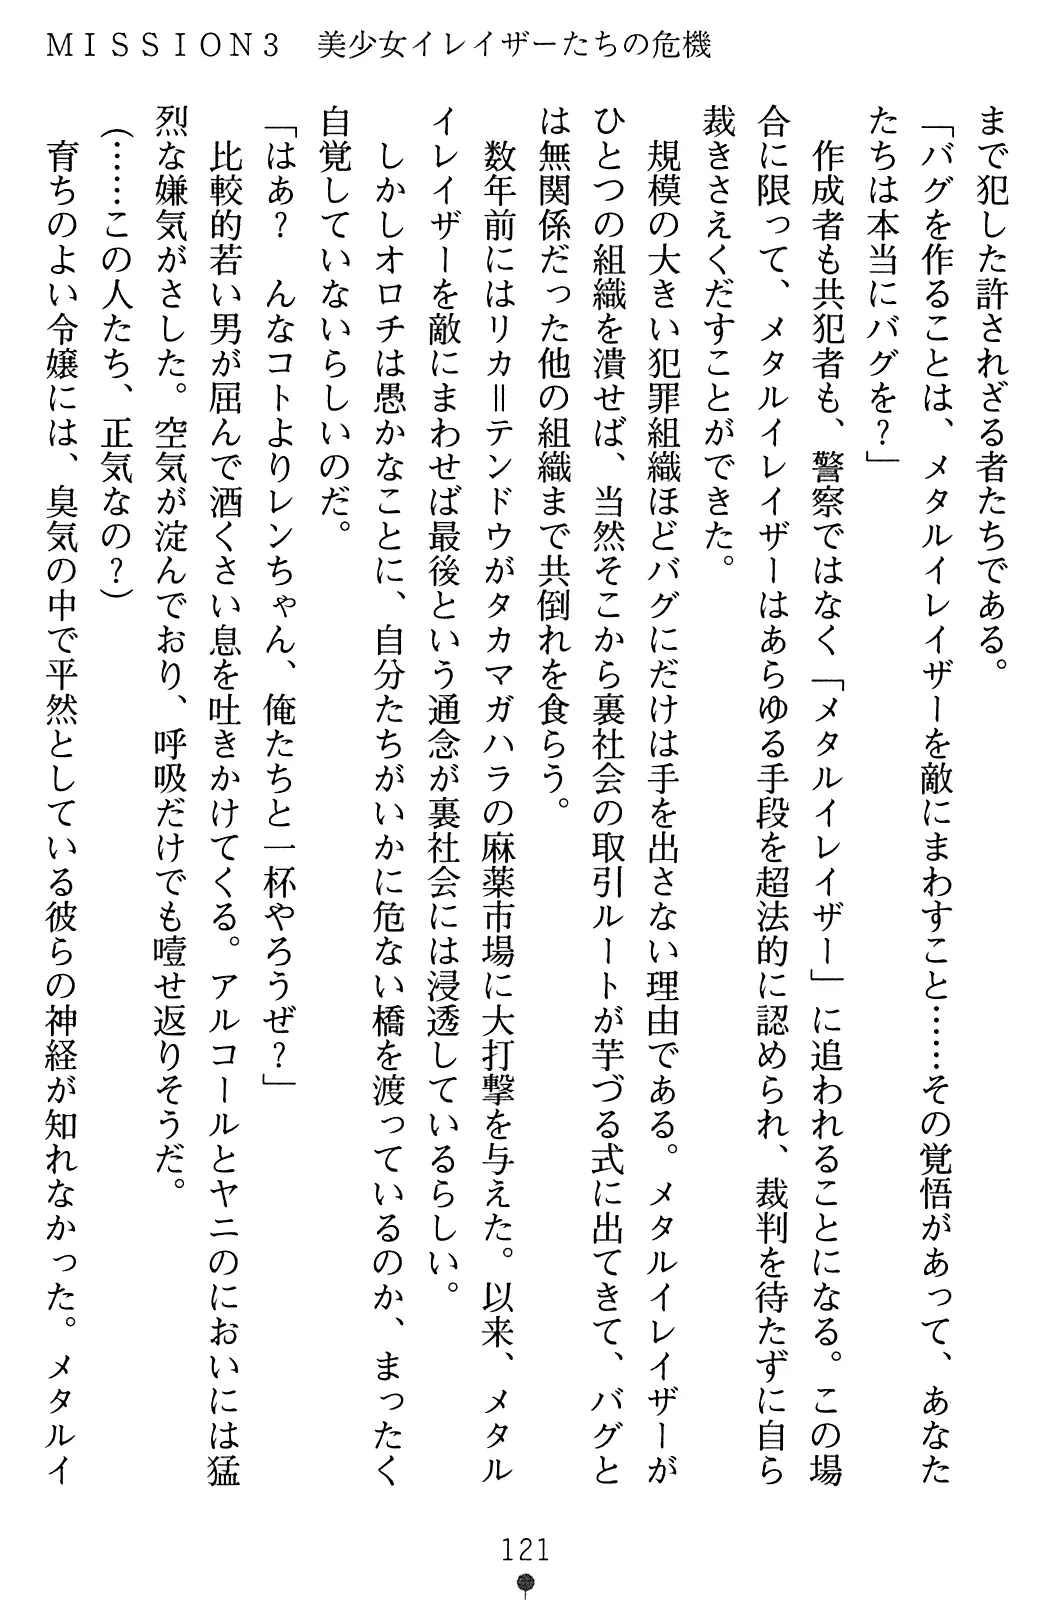 ＭＩＳＳＩＯＮ３　美少女イレイザーたちの危機
まで犯した許されざる者たちである。
「バグを作ることは、メタルイレイザーを敵にまわすこと……その覚悟があって、あなた
たちは本当にバグを？」
　作成者も共犯者も、警察ではなく「メタルイレイザー」に追われることになる。この場
合に限って、メタルイレイザーはあらゆる手段を超法的に認められ、裁判を待たずに自ら
裁きさえくだすことができた。
　規模の大きい犯罪組織ほどバグにだけは手を出さない理由である。メタルイレイザーが
ひとつの組織を潰せば、当然そこから裏社会の取引ルートが芋づる式に出てきて、バグと
は無関係だった他の組織まで共倒れを食らう。
　数年前にはリカ＝テンドウがタカマガハラの麻薬市場に大打撃を与えた。以来、メタル
イレイザーを敵にまわせば最後という通念が裏社会には浸透しているらしい。
　しかしオロチは愚かなことに、自分たちがいかに危ない橋を渡っているのか、まったく
自覚していないらしいのだ。
「はあ？　んなコトよりレンちゃん、俺たちと一杯やろうぜ？」
　比較的若い男が屈んで酒くさい息を吐きかけてくる。アルコールとヤニのにおいには猛
烈な嫌気がさした。空気が淀んでおり、呼吸だけでも噎せ返りそうだ。
（……この人たち、正気なの？）
　育ちのよい令嬢には、臭気の中で平然としている彼らの神経が知れなかった。メタルイ
121